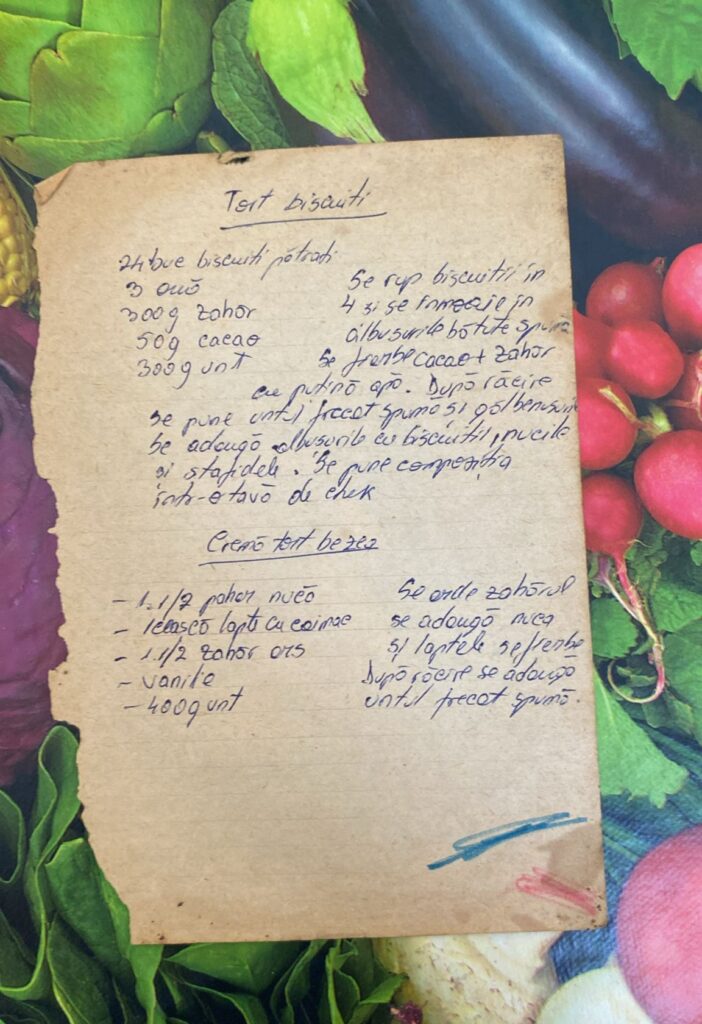 Tort biscuiti
24 buc biscuiti pătrați
3 ouă
300g zahăr
50g cacao
300g unt
Se rup biscuitii in
4 si se inmoaie in
albusurile bătute spumă
Se fierbe cacao + zahăr
cu putină apă. După răcire
se pune untul frecat spumă si gălbenusurile
Se adaugă albusurile cu biscuitii, nucile
si stafidele. Se pune compoziția
intr-o tavă de chek
Cremă tort bezea
- 1.1/2 pahar nucă
- 1 cească lapte cu caimac
- 1.1/2 zahăr ars
- vanilie
- 400g unt
Se arde zahărul
se adaugă nuca
si laptele se fierbe
După răcire se adaugă
untul frecat spumă.